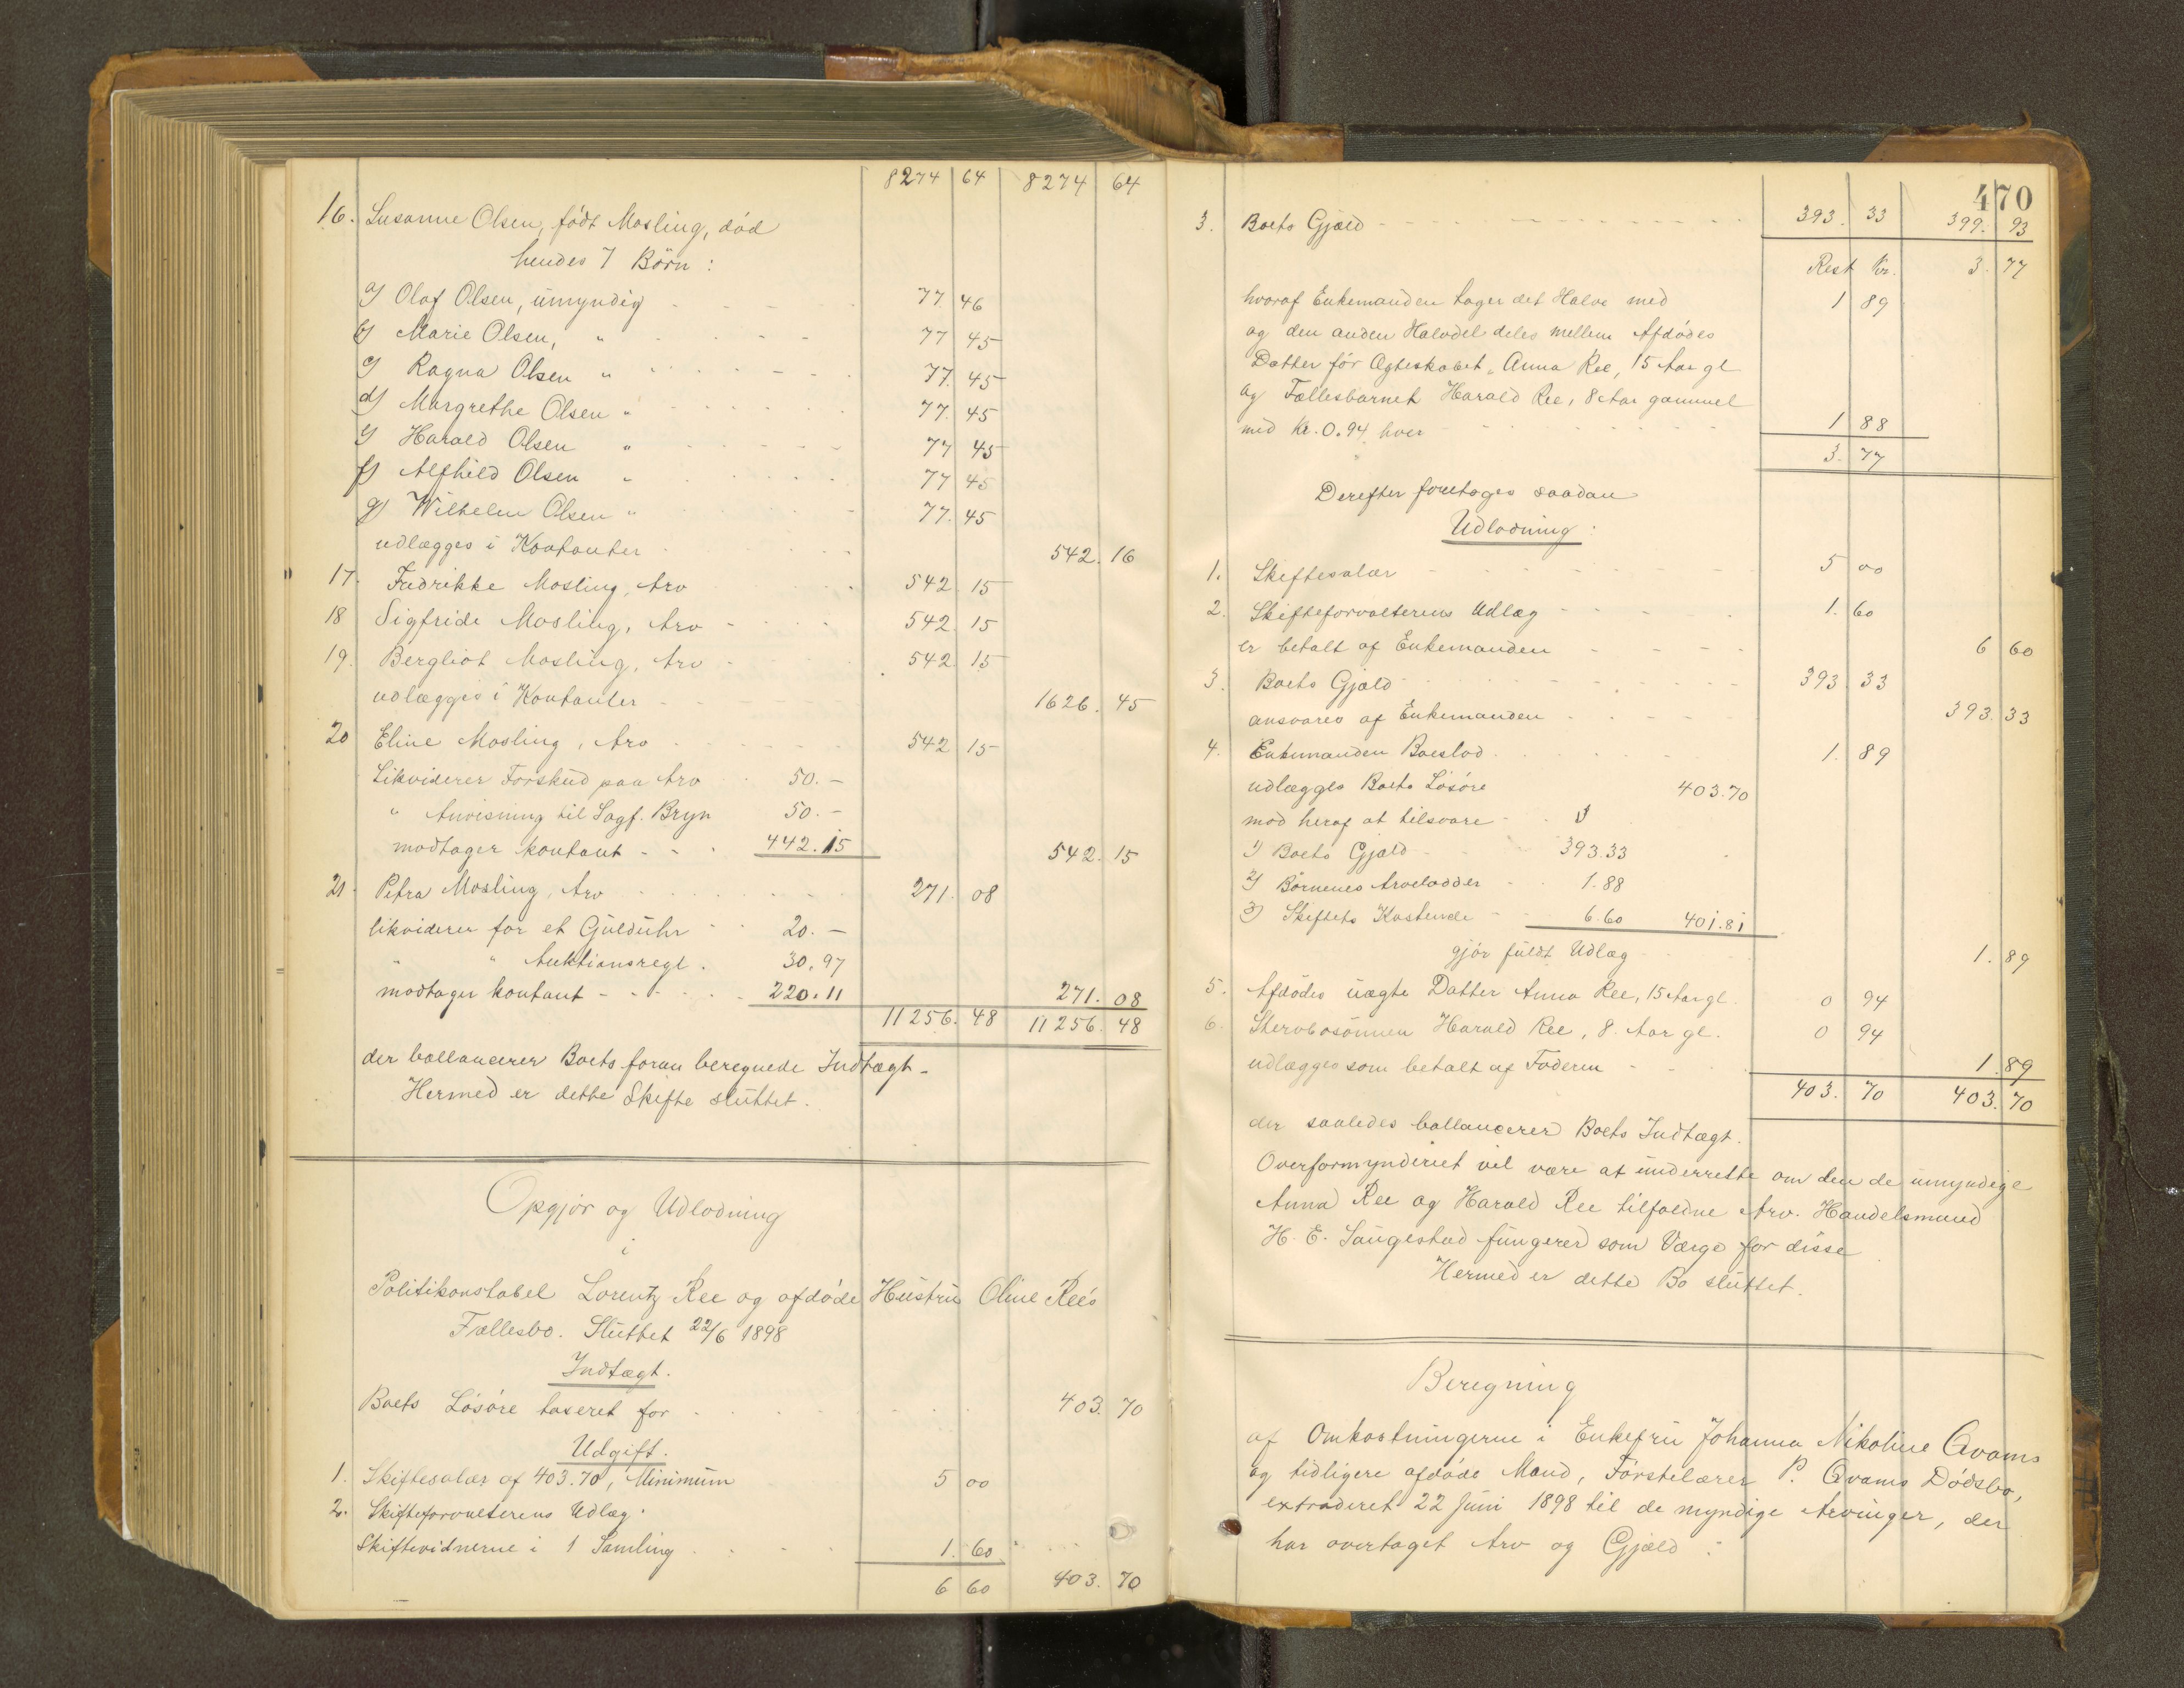 8274 64 8274 64
16. Susanne Olsen, født Mosling, död
hendes 7 Börn:
a) Olaf Olsen, umyndig 77. 46
b) Marie Olsen, " 77 45
c) Ragna Olsen " 77. 45
d) Margrethe Olsen " 77. 45
e) Harald Olsen " 77 45
f) Alfhild Olsen " 77 45
g) Wilhelm Olsen " 77. 45
udlægges i Kontanter 542. 16
17. Fredrikke Mosling, Arv 542 15
18 Sigfride Mosling, Arv 542. 15
19. Bergliot Mosling, Arv 542. 15
udlægges i Kontanter 1626. 45
20 Eline Mosling, Arv 542 15
Likviderer Forskud paa Arv 50.-
" Anvisning til Sagf. Bryn 50.-
modtager kontant 442.15 542. 15
21. Petra Mosling, Arv 271. 08
likviderer for et Guldühr 20.-
" " Auktionsregl. 30.97
modtager kontant 220.11 271. 08
11256. 48 11256. 48
der ballancerer Boets foran beregnede Indtægt.
Hermed er dette Skifte sluttet.
Opgjør og Udlodning
i
Politikonstabel Lorentz Ree og afdøde Hustru Oline Ree's
Fællesbo. Sluttet 22/6 1898
Indtægt.
Boets Løsøre taxeret for 403. 70
Udgift.
1. Skiftesalær af 403.70, Minimum 5 00
2. Skifteforvalterens Udlæg:
Skiftevidnerne i 1 Samling 1. 60
6 60 403. 70
470
3. Boets Gjæld 393. 33 399. 93
Rest Kr. 3. 77
hvoraf Enkemanden tager det Halve med 1 89
og den anden Halvdel deles mellem Afdödes
Datter för Ægteskabet, Anna Ree, 15 Aar gl
og Fællesbarnet Harald Ree, 8 Aar gammel
med Kr. 0.94 hver 1 88
3. 77
Derefter foretages saadan
Udlodning:
1. Skiftesalær 5 00
2. Skifteforvalterens Udlæg 1. 60
er betalt af Enkemanden 6 60
3. Boets Gjæld 393. 33
ansvares af Enkemanden 393. 33
4. Enkemanden Boeslod 1. 89
udlægges Boets Løsøre 403.70
mod heraf at tilsvare
1) Boets Gjæld 393.33
2) Börnenes Arvelodder 1.88
3) Skiftets Kostende 6.60 401.81
gjør fuldt Udlæg 1. 89
5. Afdödes uægte Datter Anna Ree, 15 Aar gl. 0 94
6. Stervbosönnen Harald Ree, 8. Aar gl. 0 94
udlægges som betalt af Faderen 1. 89
403. 70 403. 70
der saaledes ballancerer Boets Indtægt.
Overformynderiet vil være at underrette om den de umyndige
Anna Ree og Harald Ree tilfaldne Arv. Handelsmand
H. E. Saugestad fungerer som Værge for disse
Hermed er dette Bo sluttet.
Beregning
af Omkostningerne i Enkefru Johanna Nikoline Qvams
og tidligere afdöde Mand, Förstelærer P. Qvams Dödsbo,
extraderet 22 Juni 1898 til de myndige Arvinger, der
har overtaget Arv og Gjæld: